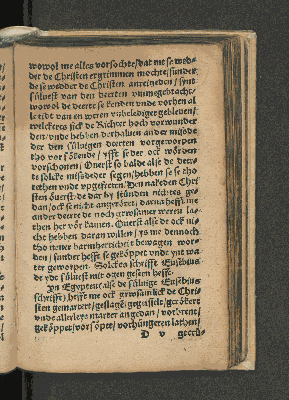 wowol me alles vorsochte/dat me se wed-
der de Christen ergrimmen mochte/sunder
de se wedder de Christen anreitzeden / synt
sülvest van den deerten ummegebracht/
wowol de deerte se kenden unde vorhen al
letidt van en weren unbeledigt gebleven/
welckeres sick de Richter hoch vorwunder
den/unde hebben derhalven ander missde
der den sülvigen deerten vorgeworpen
tho vorsökende / yfft se der ock wörden
vorschonen / Overst so balde alse de deer-
te solcke missdeder segen/hebben se se tho
reten unde upgefreten. Den nakeden Chri
sten överst de dar by stünden nichtes ge-
dan/ock se nicht angeröret/ darna hefft me
ander deerte de noch gruwsamer weren la-
then her vör kamen. Överst alse de ock ni-
cht hebben daran willen / ys me dennoch
tho nener barmherticheit bewagen wor-
den / sunder hefft se geköppet unde ynt wa
ter geworpen. Solckes schrifft Eusebius
de ydt sülvest mit ogen geseen hefft.
Yn Egypten/ alse de sülvige Eusebius
schrifft/ hefft me ock gruwsamlick de Chri-
sten gemartert / geslagen/ gegeisselt / gerökert
unde allerleye marter angedan / vorbrent/
geköppet/ vorsöpet / vorhüngeren lathen/
D v gecrü-